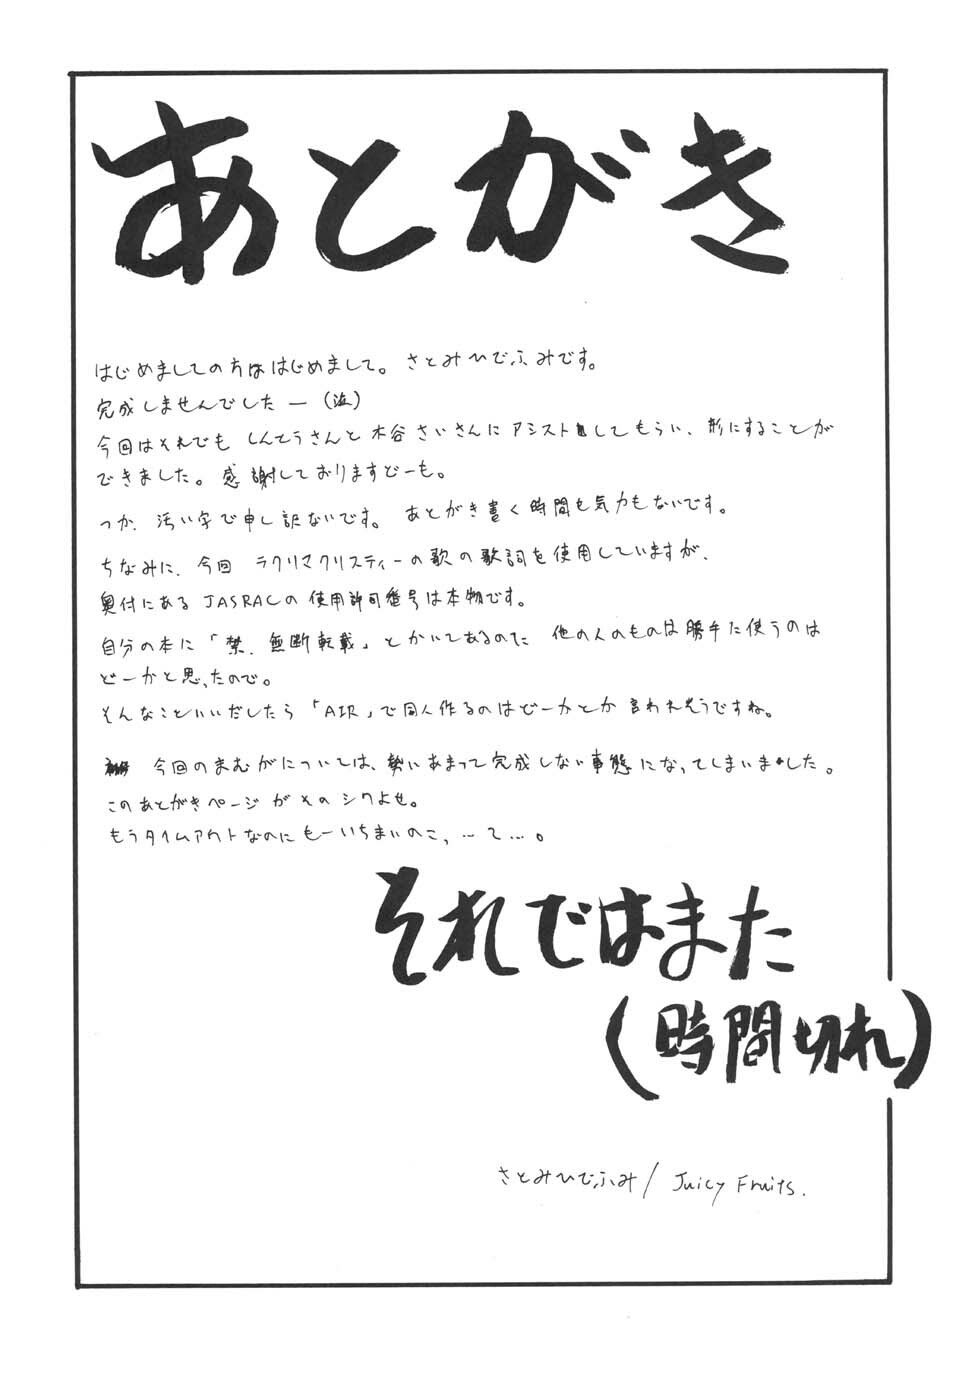 あとがき
はじめましての方ははじめまして。さとみひでふみです。
完成しませんでしたー(泣)
今回はそれでも しんてうさんと木谷さいさんにアシストしてもらい、形にすることが
できました。感謝しておりますどーも。
つか、汚い字で申し訳ないです。 あとがき書く時間も気力もないです。
ちなみに、今回 ラクリマクリスティーの歌の歌詞を使用していますが、
奥付にあるJASRACの使用許可番号は本物です。
自分の本に「禁.無断転載」とかいてあるのに 他の人のものは勝手に使うのは
どーかと思ったので。
そんなこといいだしたら「AIR」で同人作るのはどーかとか言われそうですね。
今回のまむがについては、勢いあまって完成しない事態になってしまいました。
このあとがきページがそのシワよせ。
もうタイムアウトなのにもーいちまいのこって…。
それではまた
(時間切れ)
さとみひでふみ/Juicy Fruits.